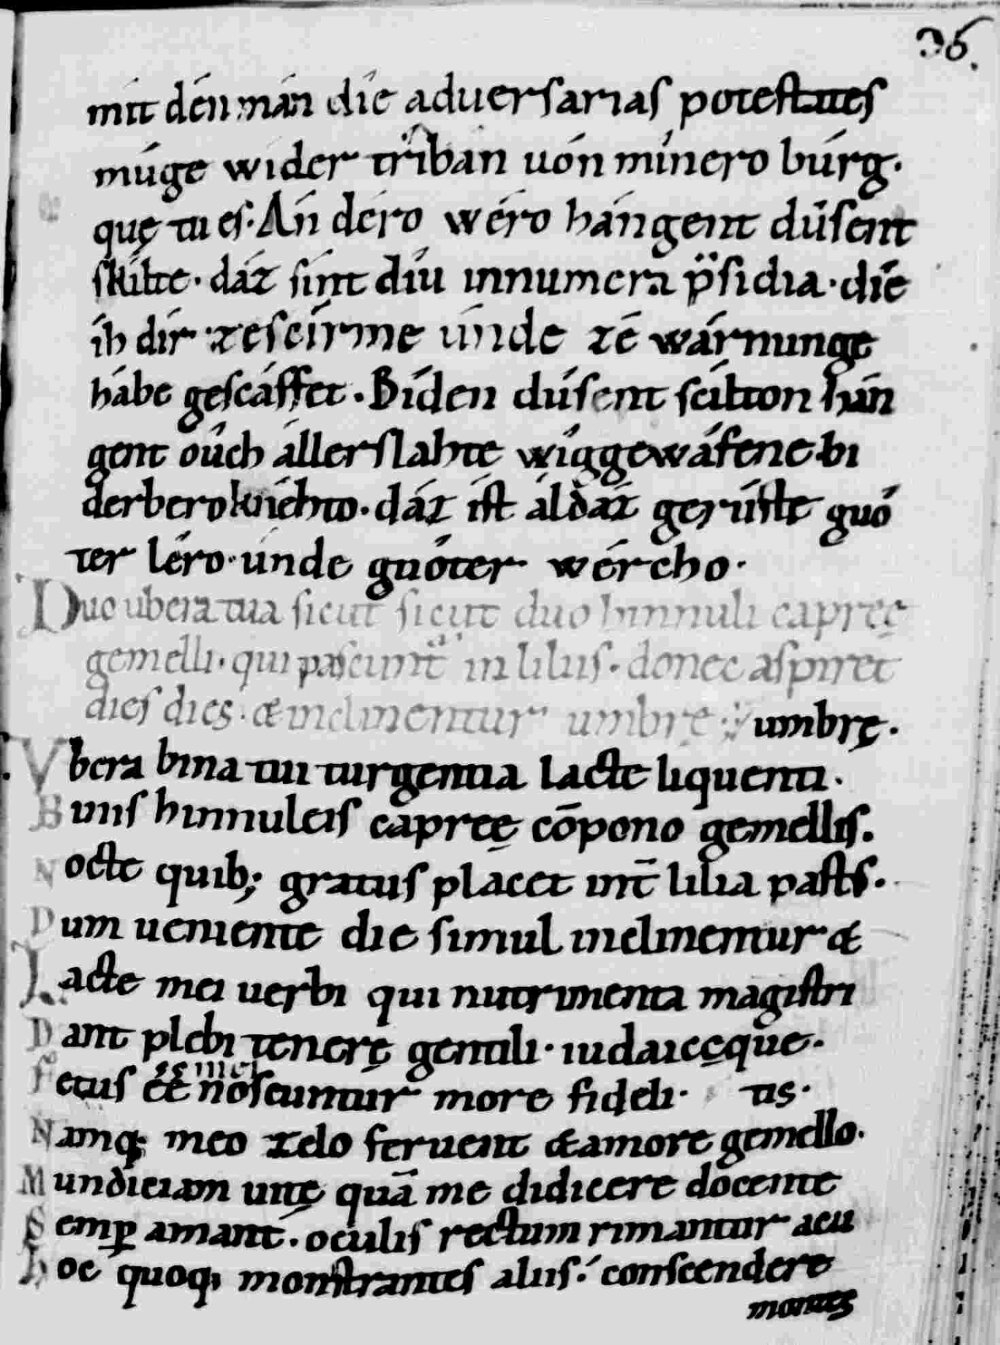 36.
mít dén mán díe aduersarias potestates
múge wider tríban uón mínero búrg.
quę tu es. Án déro wéro hángent dûsent
skílte. dáz sínt díu innumera p̄sidia. díe
íh dír zescírme únde zé wárnunge
hábe gescáffet. Bíden dúsent scílton hán
gent óuch állerslahte wíggewáfene bi
derbero knéhto. dáz íst ál dáz gerúste guó
ter léro. únde guóter wércho.
Duo ubera tua sicut sicut duo hinnuli capręę
gemelli. qui pascunt᷑ in liliis. donec aspiret
dies dies. & inclinentur umbrę. umbrę.
Vbera bina tui turgentia lacte liquenti.
Binis hinnuleis capreę cōpono gemellis.
Nocte quib; gratus placet int̄ lilia pastꝰ.
Dum ueniente die simul inclinentur &
Lacte mei uerbi qui nutrimenta magistri
Dant plebi tenerę gentili. iudaicęque.
Fetus ēē noscuntur more fideli. tis.
Namq; meo zelo feruent & amore gemello.
Mundiciam uitę quā me didicere docente
Semꝑ amant. oculis rectum rimantur acu
Hoc quoq; monstrantes aliis. conscendere
montes